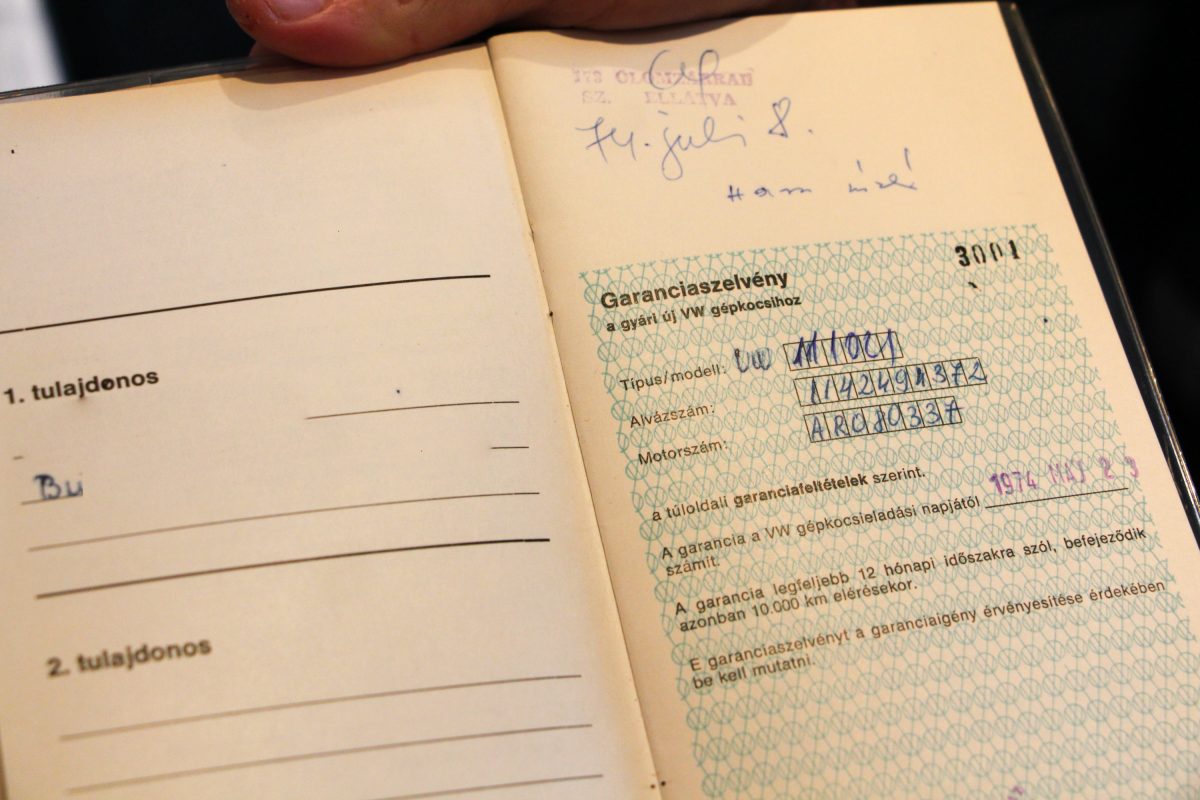 1. tulajdonos
Bu
2. tulajdonos
273 ÓLOMZÁRRAL
SZ. ELLÁTVA
74. juli 8.
3001
Garanciaszelvény
a gyári új VW gépkocsihoz
Típus/modell: VW 111021
Alvázszám: 1142494372
Motorszám: AR080337
a túloldali garanciafeltételek szerint.
A garancia a VW gépkocsieladási napjától 1974 MÁJ 23
számit.
A garancia legfeljebb 12 hónapi időszakra szól, befejeződik
azonban 10.000 km elérésekor.
E garanciaszelvényt a garanciaigény érvényesítése érdekében
be kell mutatni.